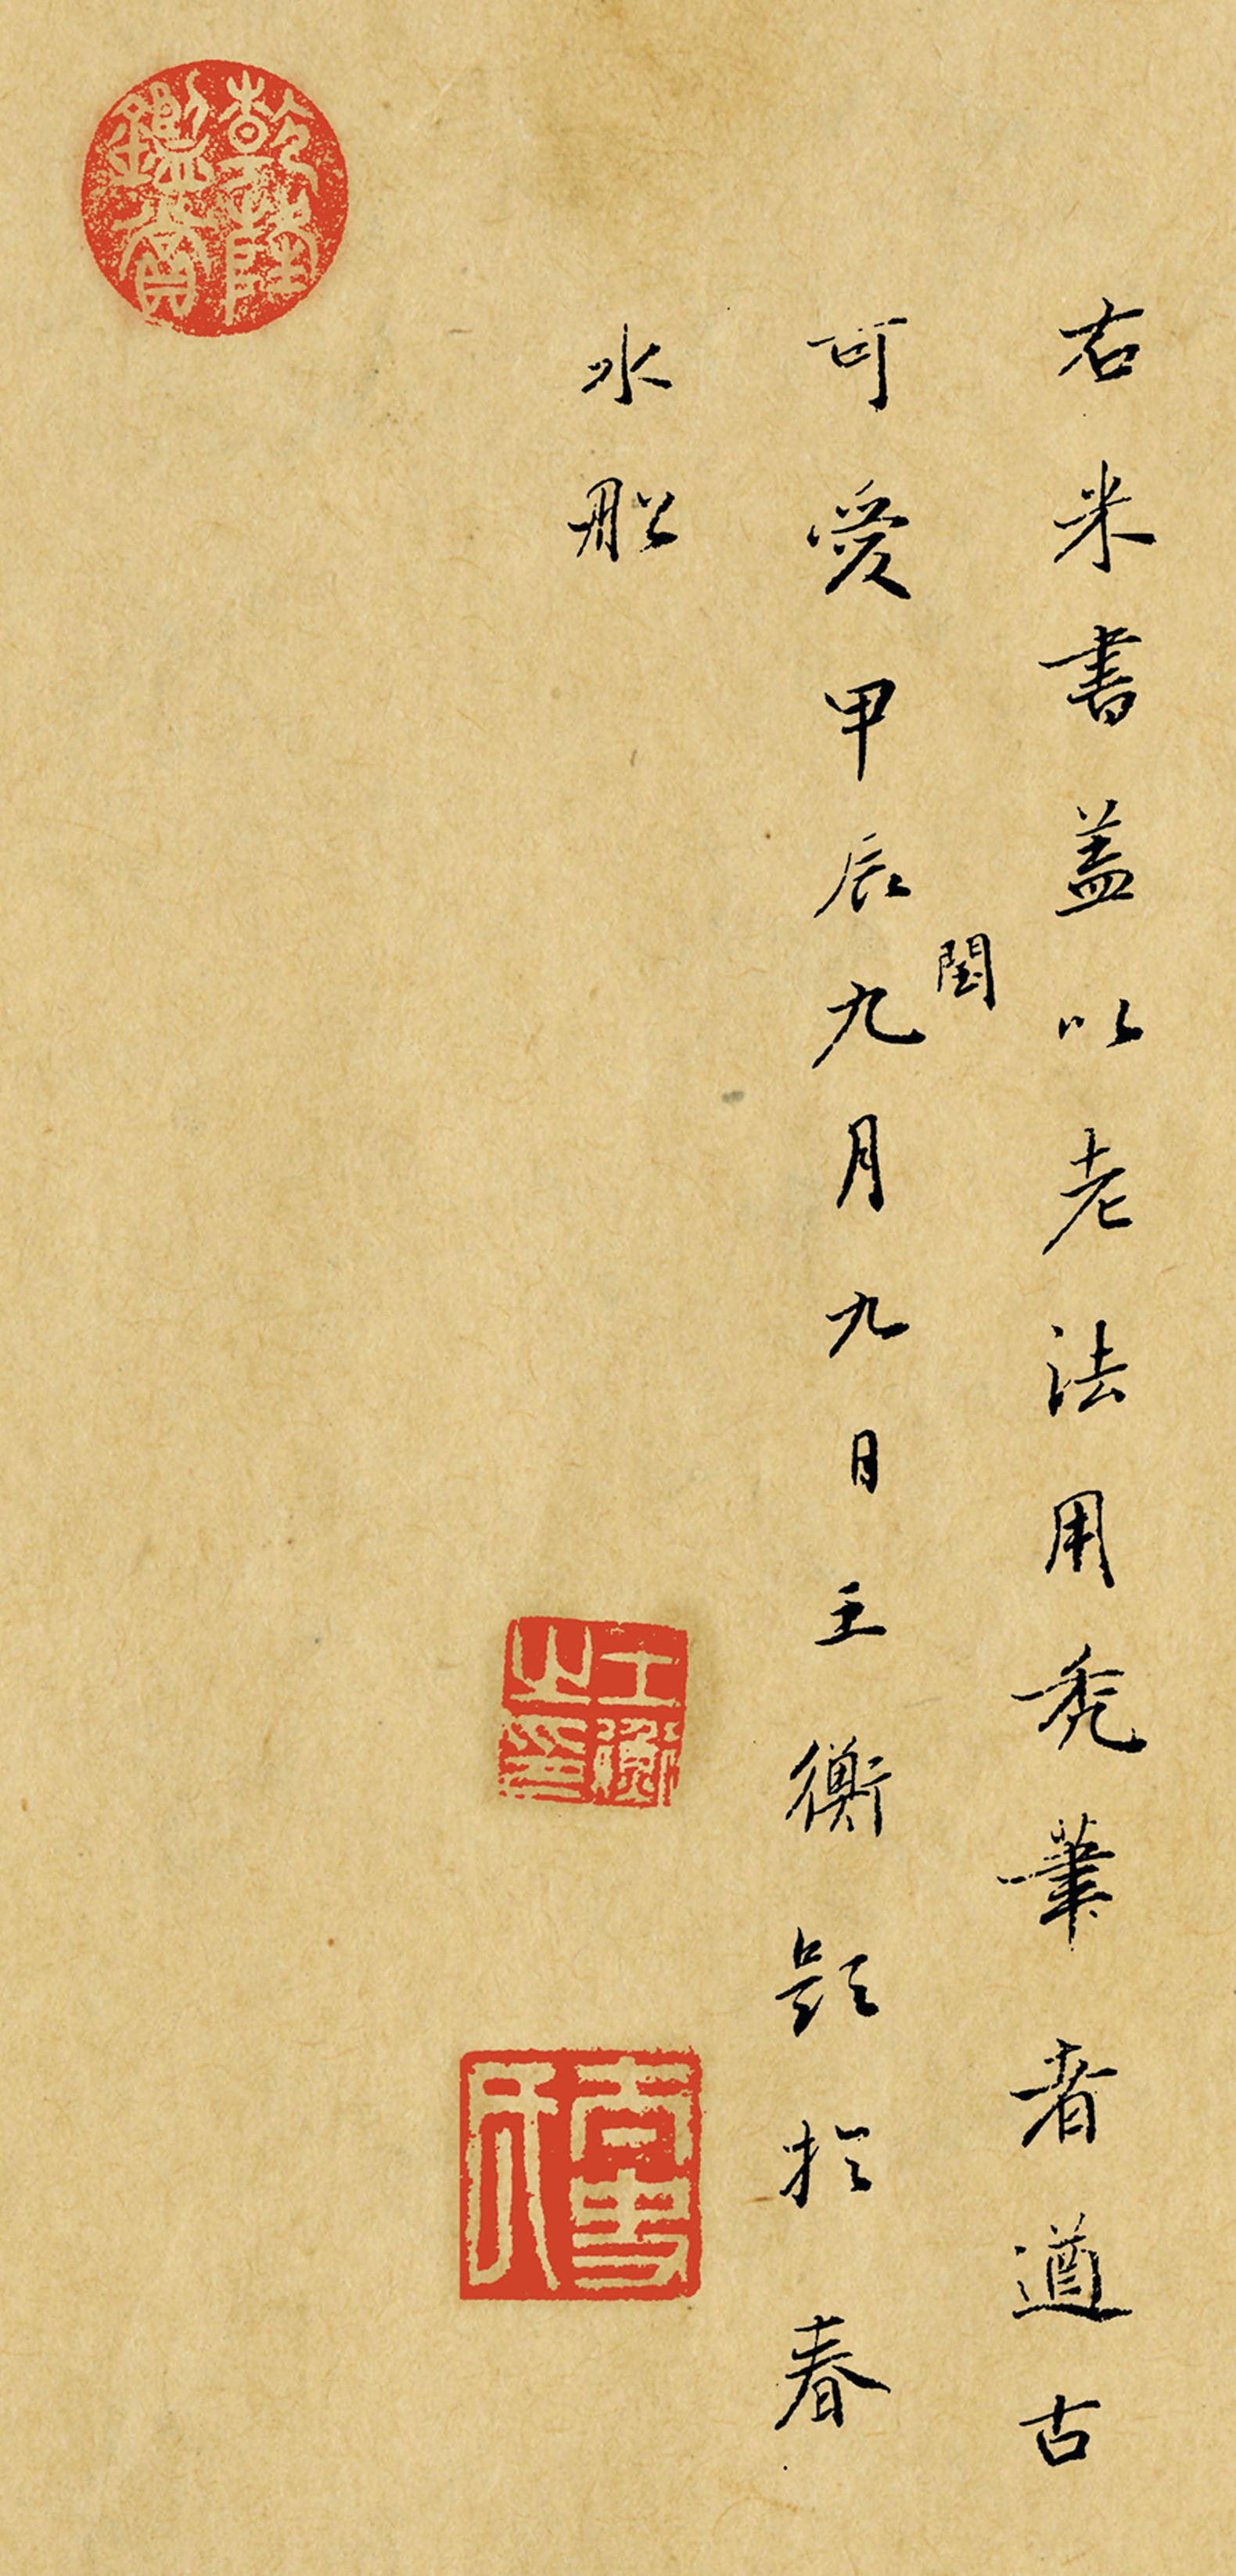 右米書蓋以老法用禿筆者遒古
可愛甲辰閏九月九日王衡題於春
水船
乾隆鑑賞
王衡之印